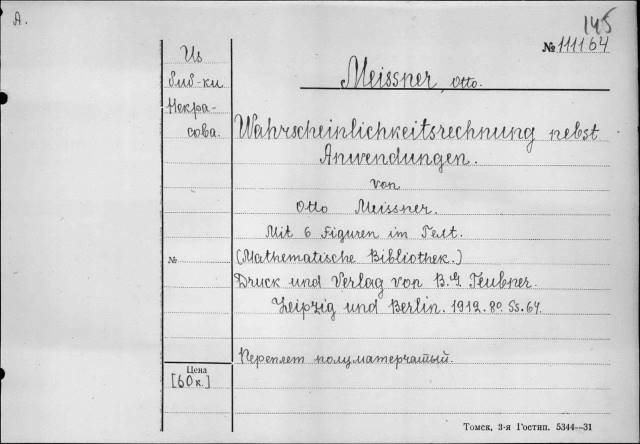 A.
145
№ 111164
Из
биб-ки
Некра-
сова.
Meissner, Otto.
Wahrscheinlichkeitsrechnung nebst
Anwendungen.
von
Otto Meissner.
Mit 6 Figuren im Text.
№
(Mathematische Bibliothek.)
Druck und Verlag von B.G. Teubner.
Leipzig und Berlin. 1912. 8o. SS. 64.
Переплет полуматерчатый.
Цена
[60 к.]
Томск, 3-я Гостип. 5344—31